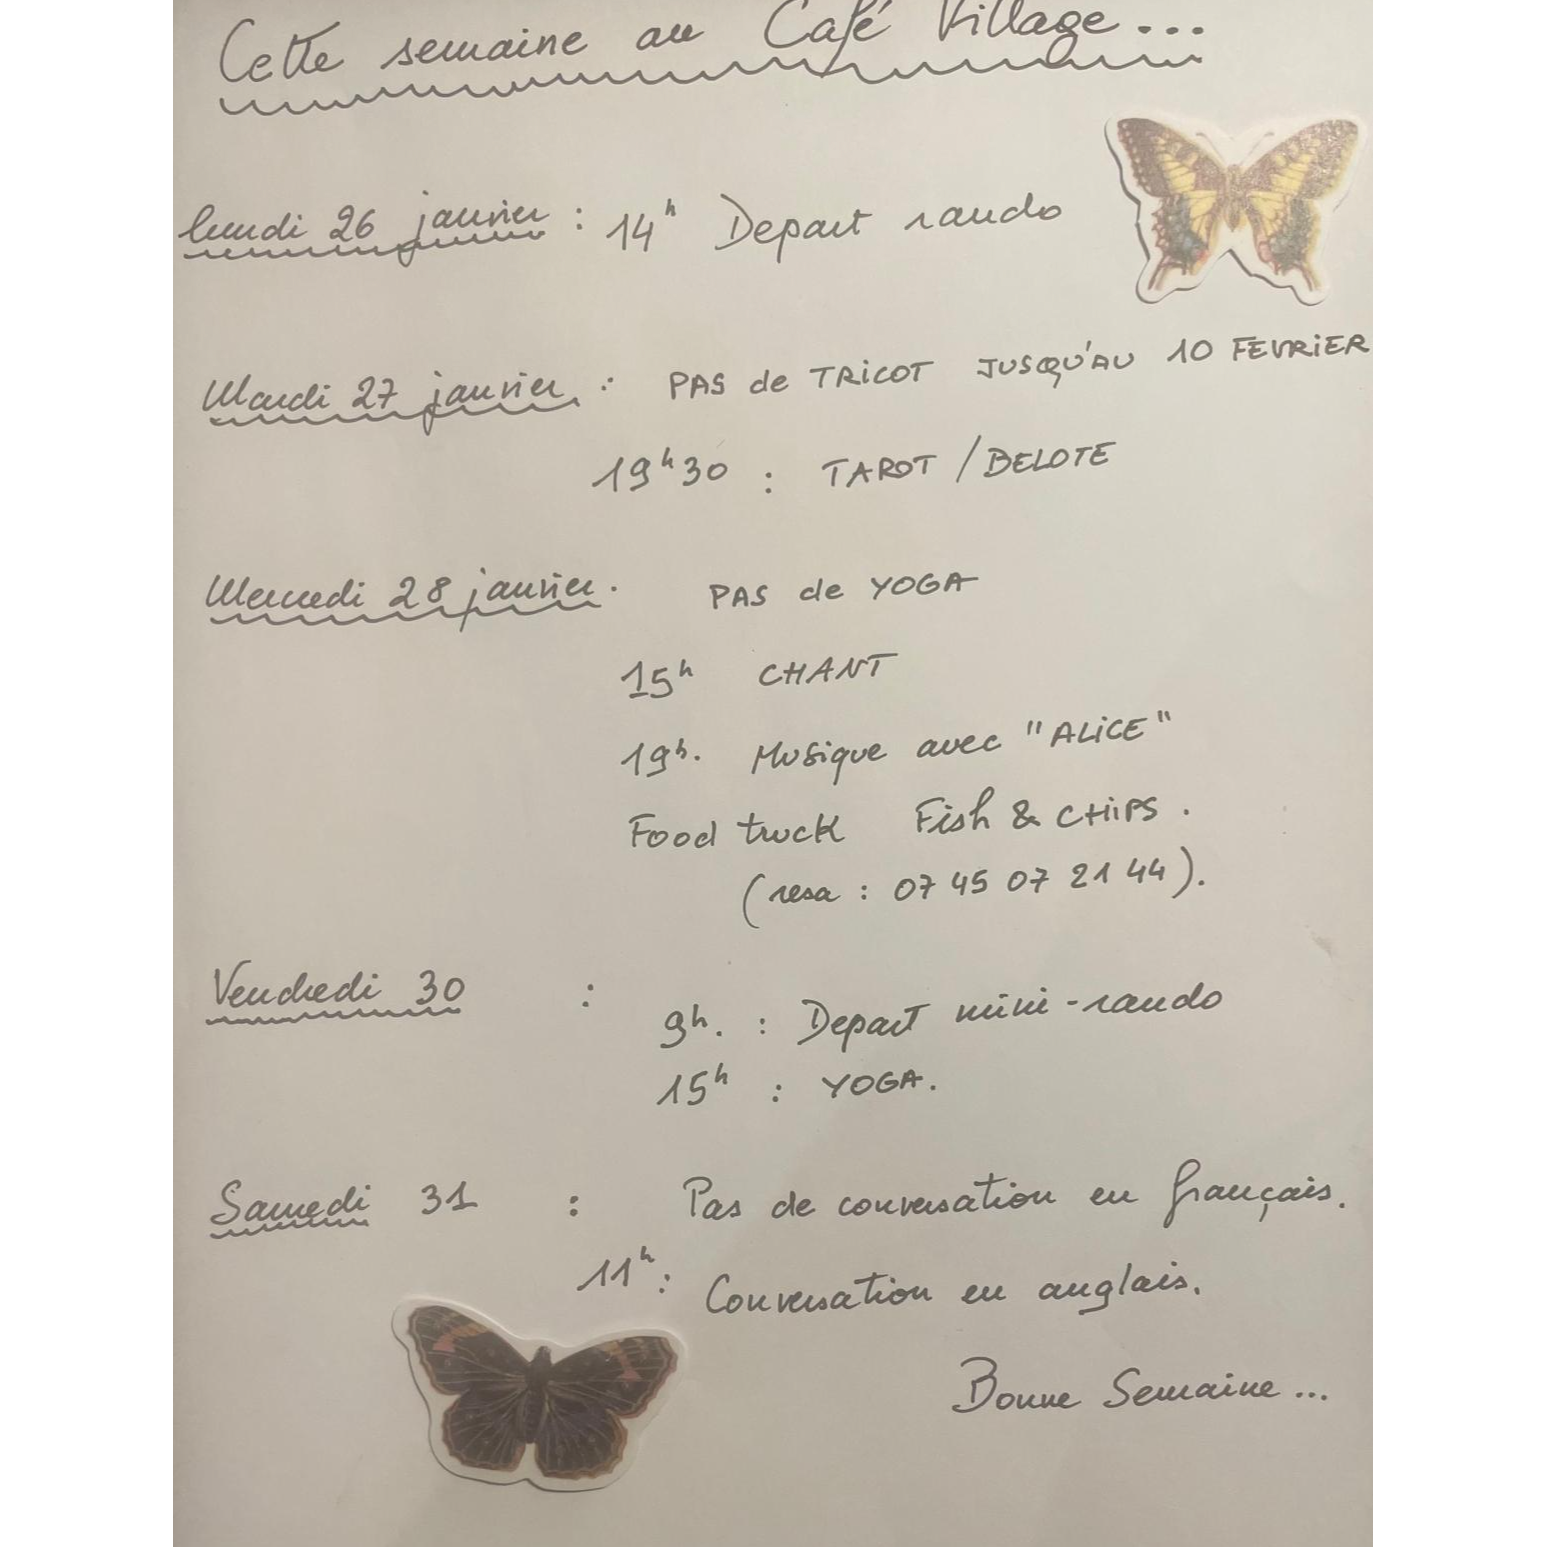 Cette semaine au Café Village...
lundi 26 janvier : 14h Depart rando
Mardi 27 janvier : PAS de TRICOT JUSQU'AU 10 FEVRIER
19h30 : TAROT / BELOTE
Mercredi 28 janvier. PAS de YOGA
15h CHANT
19h. Musique avec "ALICE"
Food truck Fish & CHIPS.
(resa : 07 45 07 21 44).
Vendredi 30 :
9h. : Depart mini-rando
15h : YOGA.
Samedi 31 : Pas de conversation en français.
11h : Conversation en anglais.
Bonne Semaine...